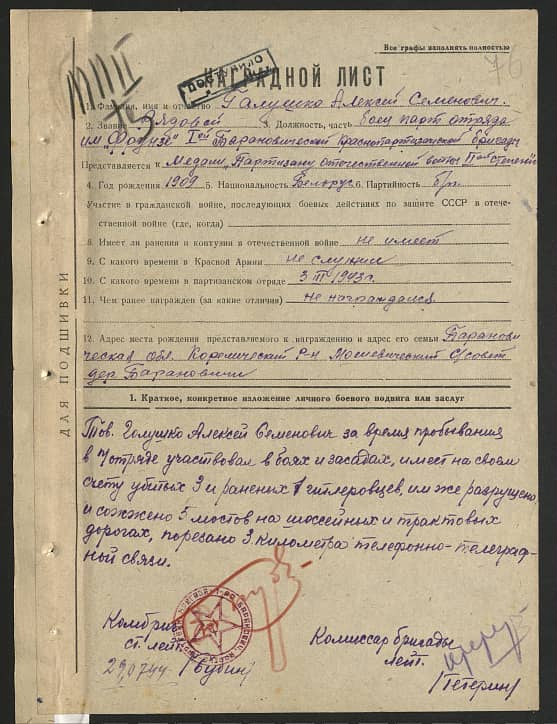 Все графы заполнять полностью
76
ПОСТУПИЛО
НАГРАДНОЙ ЛИСТ
1. Фамилия, имя и отчество Галушко Алексей Семенович.
2. Звание Рядовой 3. Должность, часть боец парт отряда
им "Фрунзе" 1ой Барановической Краснопартизанской бригады
Представляется к Медали "Партизану отечественной войны IIой степени"
4. Год рождения 1909 5. Национальность Белорус 6. Партийность б/п.
Участие в гражданской войне, последующих боевых действиях по защите СССР в отече-
ственной войне (где, когда)
8. Имеет ли ранения и контузии в отечественной войне не имеет
9. С какого времени в Красной Армии не служил
10. С какого времени в партизанском отряде 3 III 1943г.
11. Чем ранее награжден (за какие отличия) не награждался
12. Адрес места рождения представляемого к награждению и адрес его семьи Баранови
ческая обл. Корелический р-н С/совет
дер. Барановичи
ДЛЯ ПОДШИВКИ
1. Краткое, конкретное изложение личного боевого подвига или заслуг
Тов. Голушко Алексей Семенович за время пробывания
в отряде участвовал в боях и засадах, имеет на своем
счету убитых 3 и раненых 1 гитлеровцев, им же разрушено
и сожжено 5 мостов на шоссейных и трактовых
дорогах, порезано 3 километра телефонно-телеграф-
ной связи.
Комбриг
ст. лейт.
29.07.44 /Бубин/
Комиссар бригады
лейт.
/Петерин/